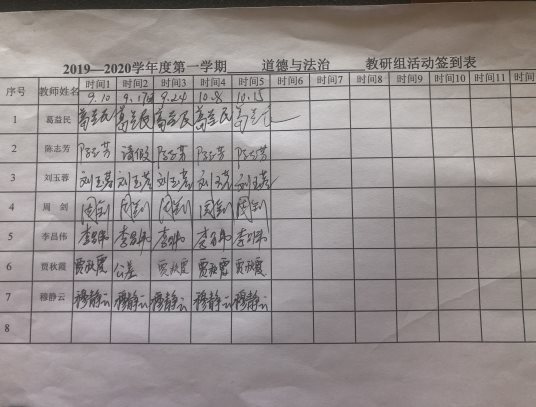 2019—2020学年度第一学期 道德与法治 教研组活动签到表
序号 教师姓名 时间1 时间2 时间3 时间4 时间5 时间6 时间7 时间8 时间9 时间10 时间11 时间
9.10 9.17 9.24 10.8 10.15
1 葛益民 葛益民 葛益民 葛益民 葛益民 葛益民
2 陈志芳 陈志芳 请假 陈志芳 陈志芳 陈志芳
3 刘玉蓉 刘玉蓉 刘玉蓉 刘玉蓉 刘玉蓉 刘玉蓉
4 周 剑 周剑 周剑 周剑 周剑 周剑
5 李昌伟 李昌伟 李昌伟 李昌伟 李昌伟 李昌伟
6 贾秋霞 贾秋霞 公差 贾秋霞 贾秋霞 贾秋霞
7 穆静云 穆静云 穆静云 穆静云 穆静云 穆静云
8